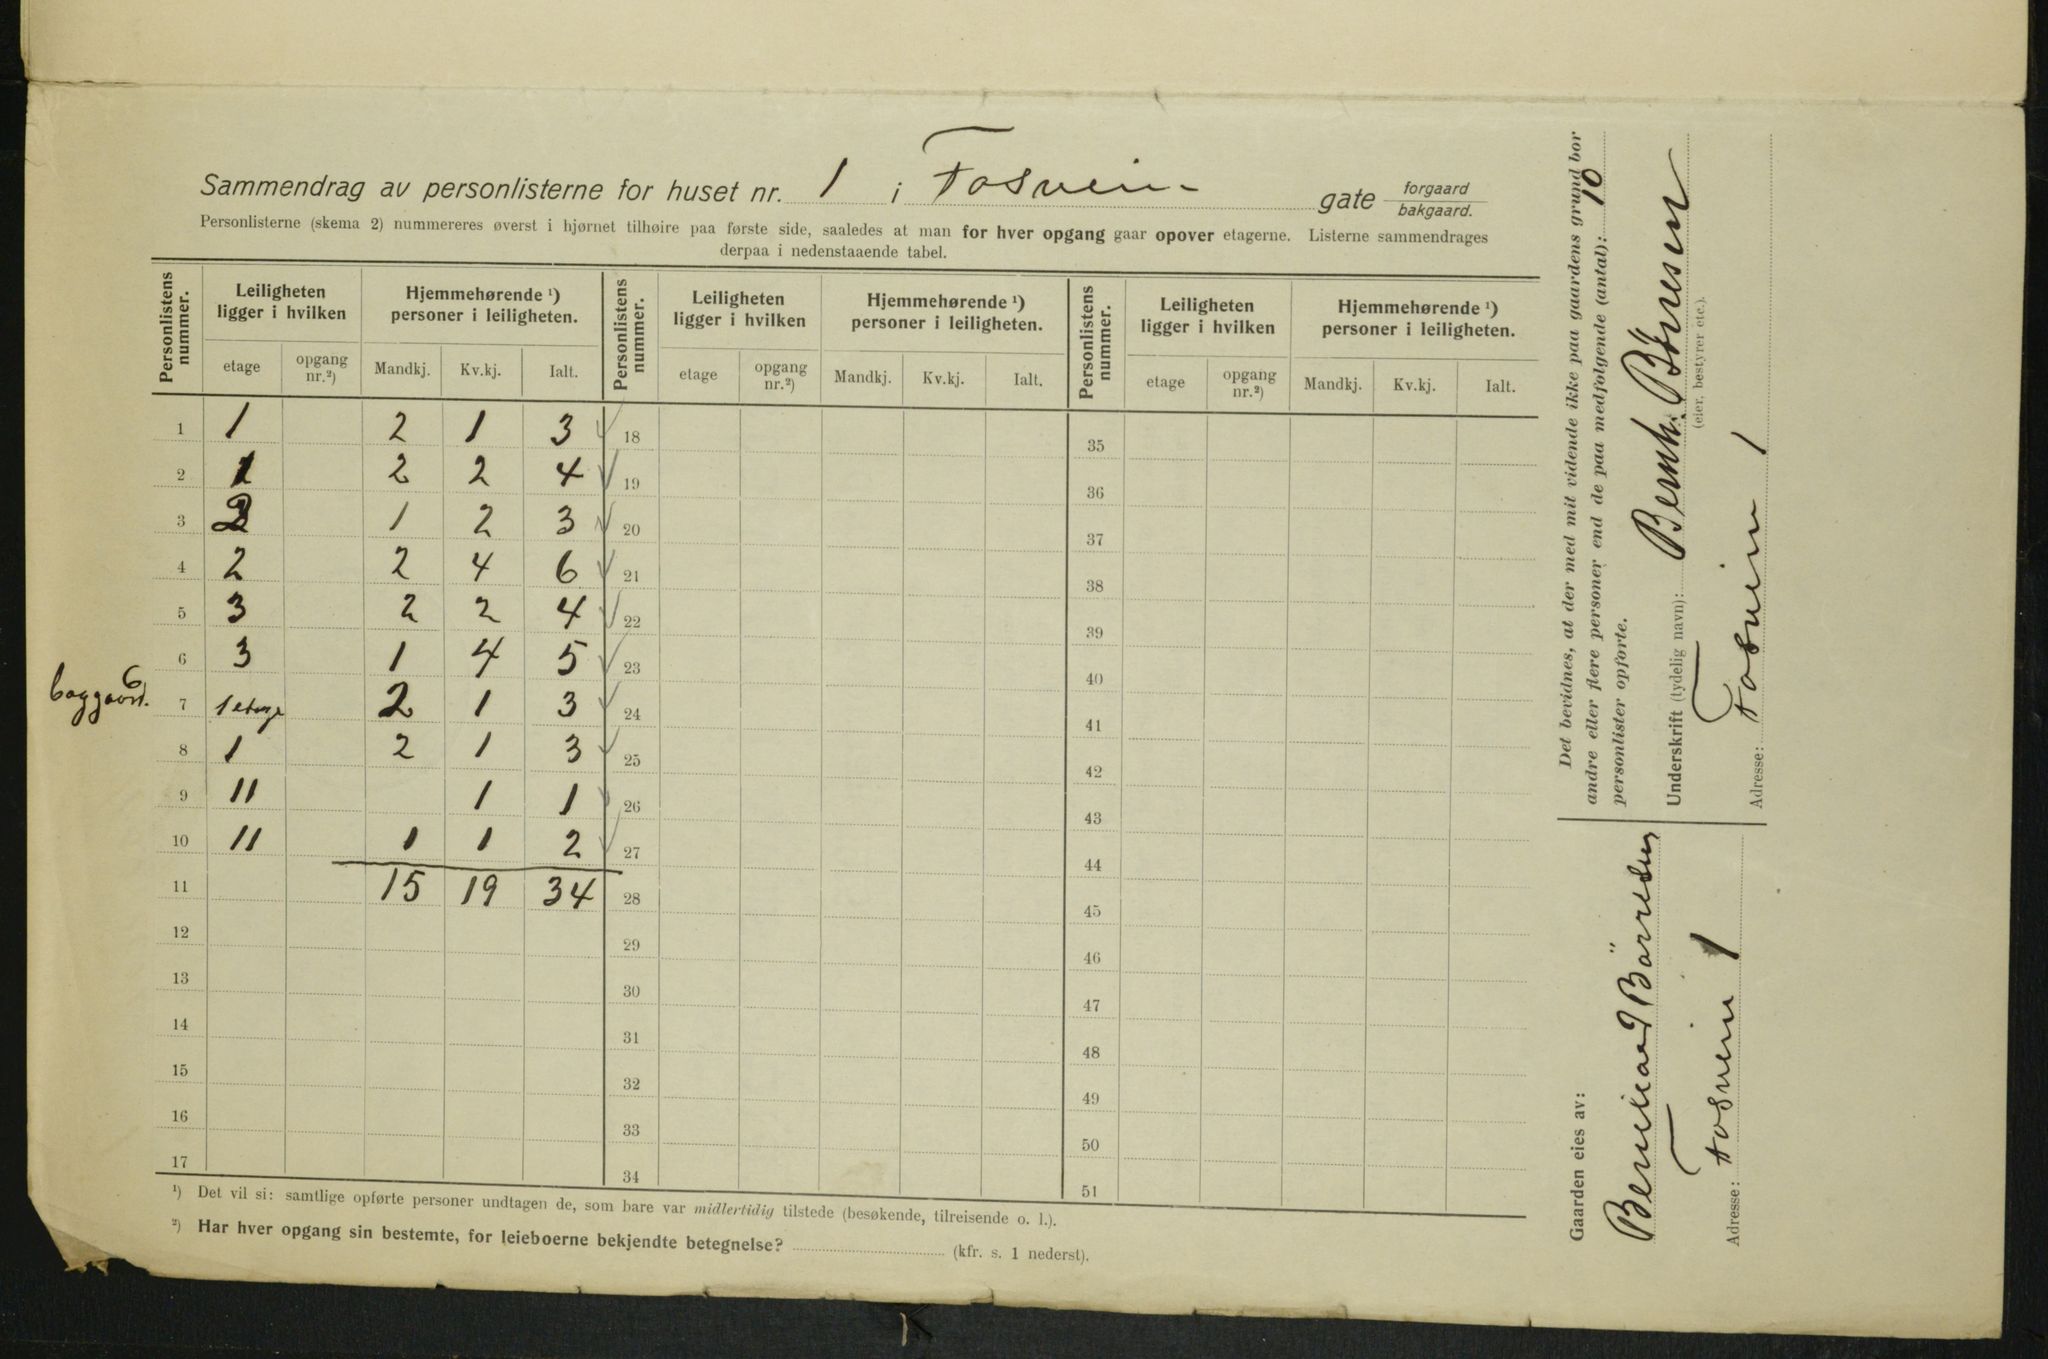 Sammendrag av personlisterne for huset nr. 1 i Fosvein gate forgaard bakgaard.
Personlisterne (skema 2) nummereres øverst i hjørnet tilhøire paa første side, saaledes at man for hver opgang gaar opover etagerne. Listerne sammendrages
derpaa i nedenstaaende tabel.
Personlistens nummer. Leiligheten ligger i hvilken Hjemmehørende ¹) personer i leiligheten. Personlistens nummer. Leiligheten ligger i hvilken Hjemmehørende ¹) personer i leiligheten. Personlistens nummer. Leiligheten ligger i hvilken Hjemmehørende ¹) personer i leiligheten.
etage opgang nr.²) Mandkj. Kv.kj. Ialt. etage opgang nr.²) Mandkj. Kv.kj. Ialt. etage opgang nr.²) Mandkj. Kv.kj. Ialt.
1 1 2 1 3 18 35
2 1 2 2 4 19 36
3 2 1 2 3 20 37
4 2 2 4 6 21 38
5 3 2 2 4 22 39
6 3 1 4 5 23 40
7 1 etage 2 1 3 24 41
8 1 2 1 3 25 42
9 11 1 1 26 43
10 11 1 1 2 27 44
11 15 19 34 28 45
12 29 46
13 30 47
14 31 48
15 32 49
16 33 50
17 34 51
¹) Det vil si: samtlige opførte personer undtagen de, som bare var midlertidig tilstede (besøkende, tilreisende o. l.).
²) Har hver opgang sin bestemte, for leieboerne bekjendte betegnelse? (kfr. s. 1 nederst).
Det bevidnes, at der med mit vidende ikke paa gaardens grund bor
andre eller flere personer end de paa medfølgende (antal): 10
personlister opførte.
Underskrift (tydelig navn): Bernh. Börresen
(eier, bestyrer etc.).
Adresse: Fosvein 1
Gaarden eies av:
Bernhard Börresen
Adresse: Fosvein 1